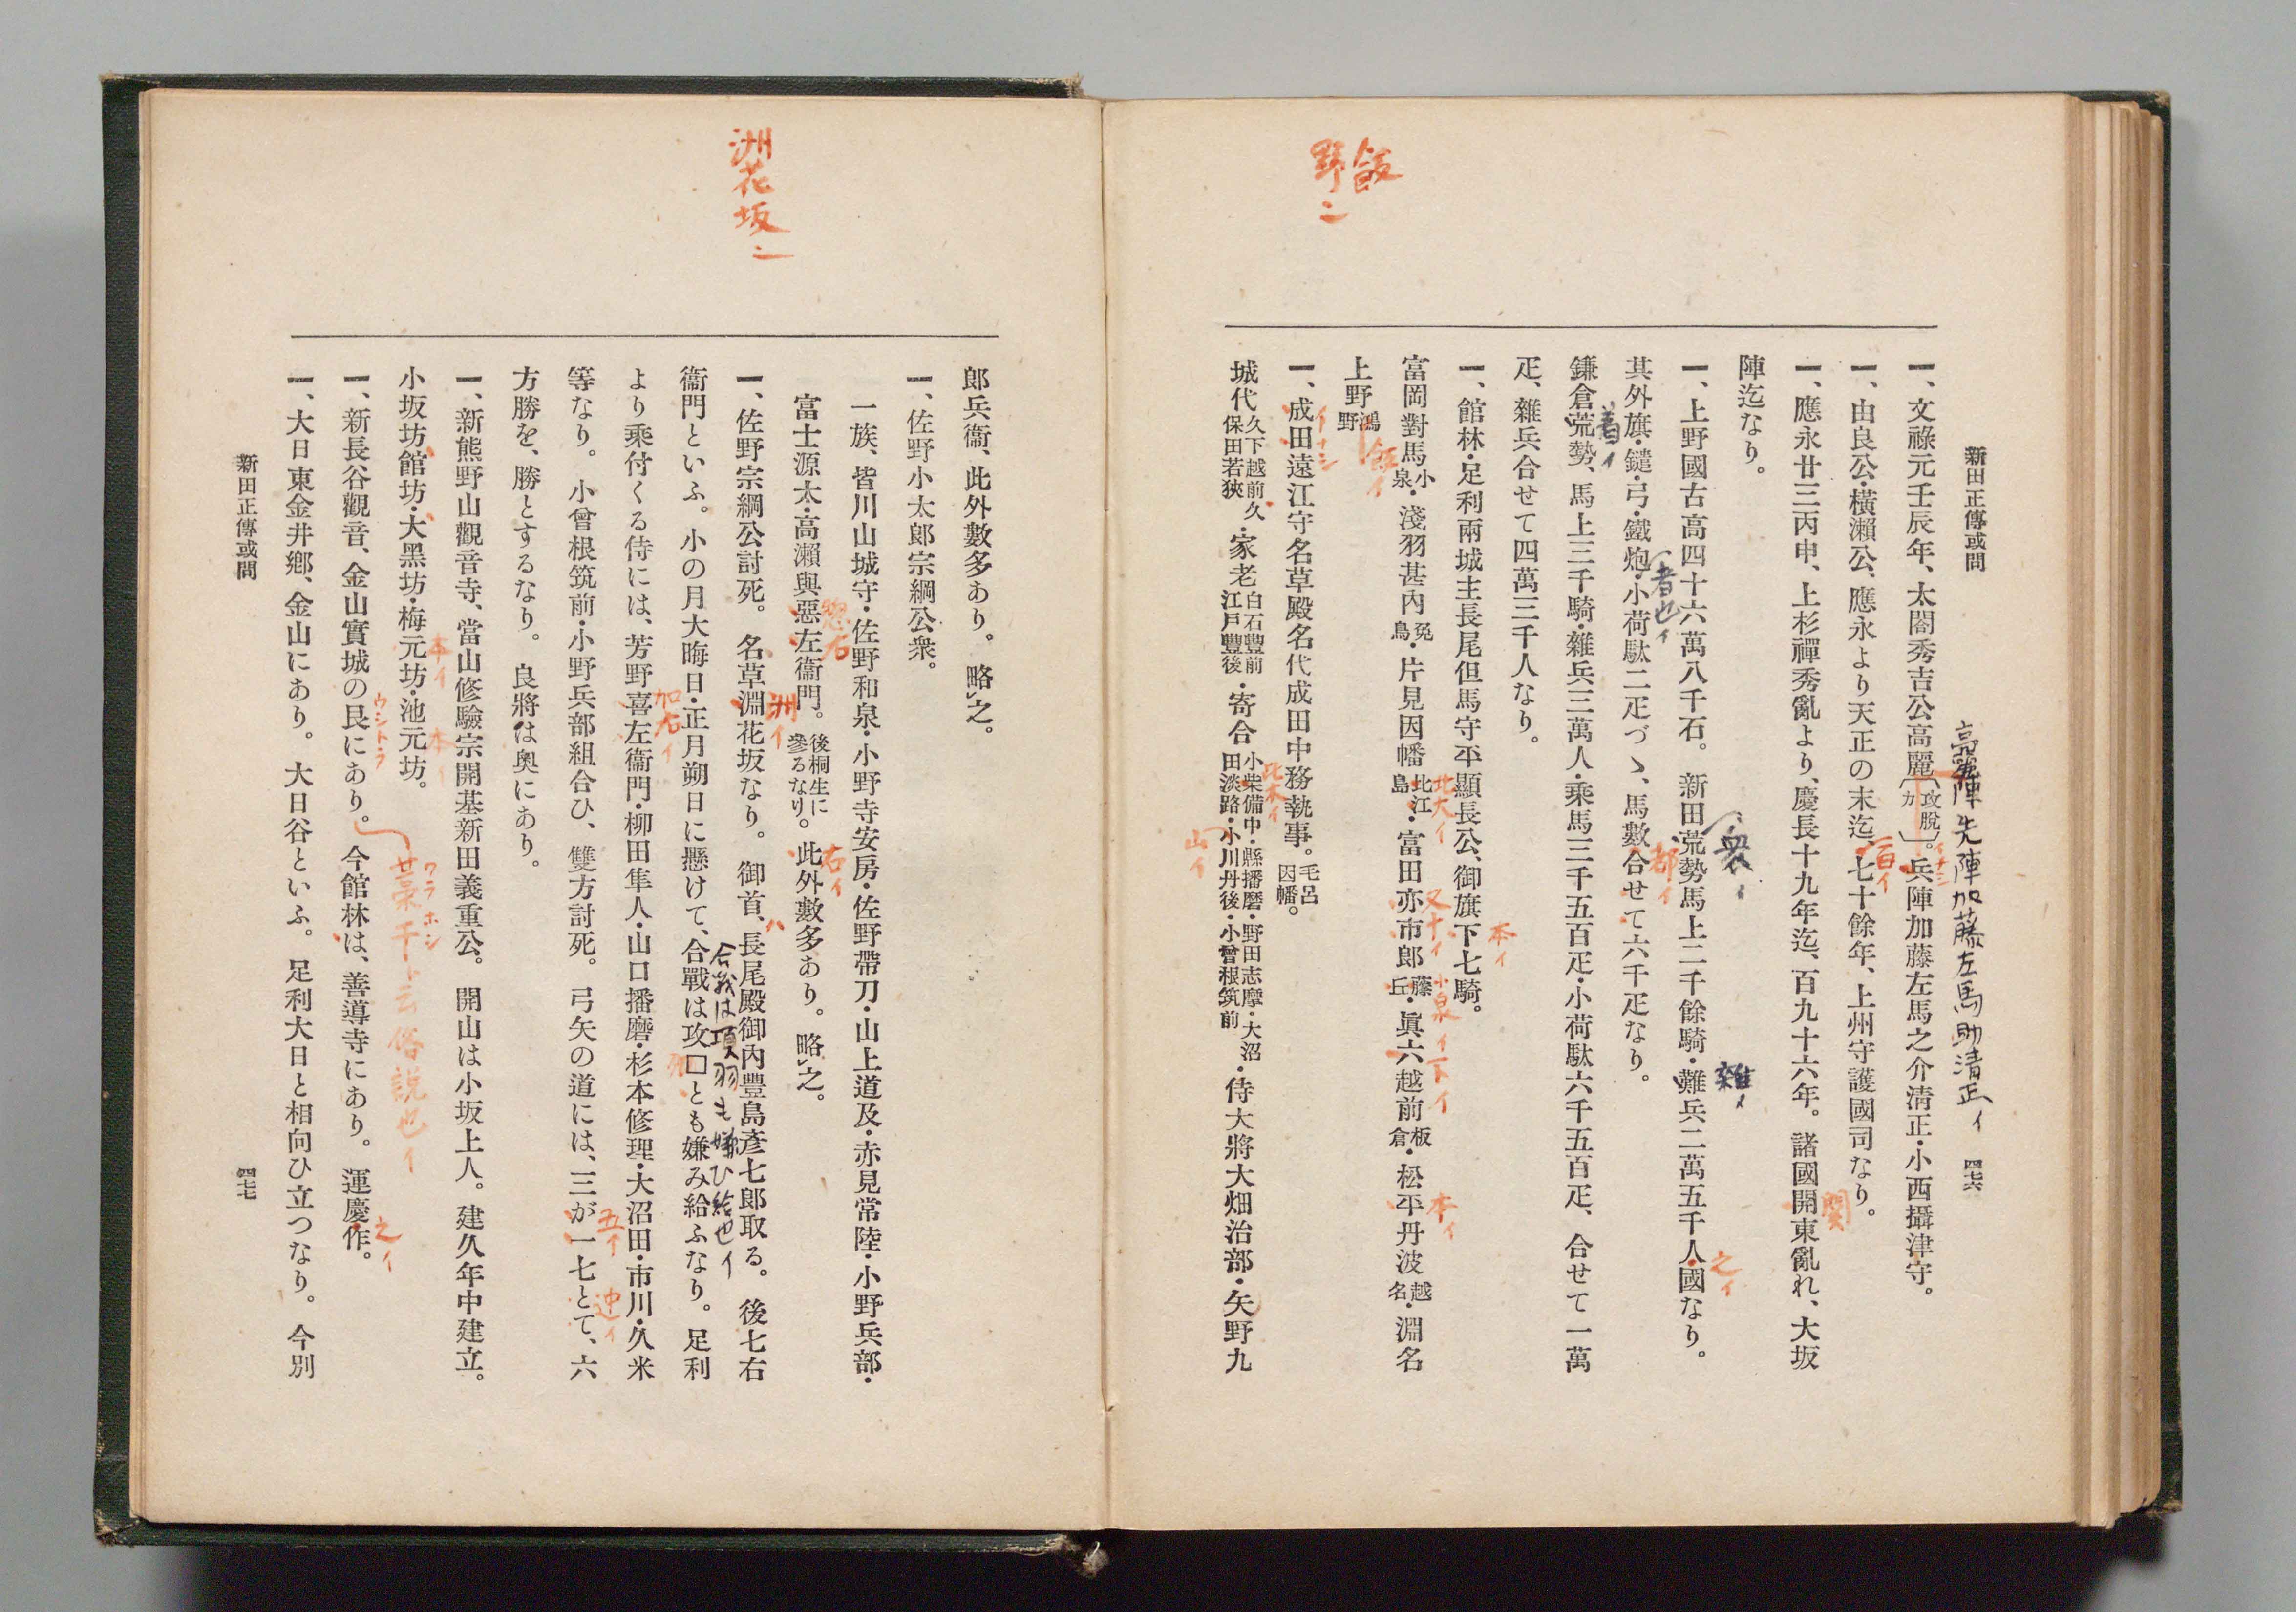 新田正傳或問
四七六
高麗陣先陣加藤左馬助清正イ
飯野ニ
一、文祿元壬辰年、太閤秀吉公高麗〔攻脫カ〕。兵陣加藤左馬之介清正・小西攝津守。
イナシ
一、由良公・橫瀨公、應永より天正の末迄、七十餘年、上州守護國司なり。
百イ
一、應永廿三丙申、上杉禪秀亂より、慶長十九年迄、百九十六年。諸國開東亂れ、大坂
關
陣迄なり。
一、上野國古高四十六萬八千石。新田荒勢馬上二千餘騎・難兵二萬五千人國なり。
衆イ
雜イ
之イ
其外旗・鑓・弓・鐵炮・小荷駄二疋づゝ、馬數合せて六千疋なり。
者也イ
都イ
鎌倉荒勢、馬上三千騎・雜兵三萬人・乘馬三千五百疋・小荷駄六千五百疋、合せて一萬
着イ
疋、雜兵合せて四萬三千人なり。
一、館林・足利兩城主長尾但馬守平顯長公、御旗下七騎。
本イ
富岡對馬小泉・淺羽甚內兎島・片見因幡北江島・富田亦市郎藤丘・眞六越前板倉・松平丹波越名・淵名
北大イ
又十イ
小泉イ
下イ
本イ
上野鴻野
飯イ
一、成田遠江守名草殿名代成田中務執事。毛呂因幡。
イナシ
城代久下越前久保田若狹・家老白石豐前江戶豐後・寄合小柴備中・縣播磨・野田志摩・大沼田淡路・小川丹後・小曾根筑前・侍大將大畑治部・矢野九
比木イ
山イ
洲花坂ニ
郎兵衞、此外數多あり。略之。
一、佐野小太郎宗綱公衆。
一族、皆川山城守・佐野和泉・小野寺安房・佐野帶刀・山上道及・赤見常陸・小野兵部・
富士源太・高瀨與惡左衞門。後桐生に參るなり。此外數多あり。略之。
惣右
右イ
一、佐野宗綱公討死。名草淵花坂なり。御首、長尾殿御內豐島彥七郎取る。後七右
洲イ
ハ
衞門といふ。小の月大晦日・正月朔日に懸けて、合戰は攻口とも嫌み給ふなり。足利
合戰は項羽も嫌ひ給也イ
より乘付くる侍には、芳野喜左衞門・柳田隼人・山口播磨・杉本修理・大沼田・市川・久米
加右イ
等なり。小曾根筑前・小野兵部組合ひ、雙方討死。弓矢の道には、三が一七とて、六
五イ
迚イ
方勝を、勝とするなり。良將は奧にあり。
一、新熊野山觀音寺、當山修驗宗開基新田義重公。開山は小坂上人。建久年中建立。
小坂坊・館坊・大黑坊・梅元坊・池元坊。
本イ
本イ
一、新長谷觀音、金山實城の艮にあり。今館林は、善導寺にあり。運慶作。
ウシトラ
廿藁干ト云俗說也イ
ワラホシ
之イ
一、大日東金井鄕、金山にあり。大日谷といふ。足利大日と相向ひ立つなり。今別
新田正傳或問
四七七